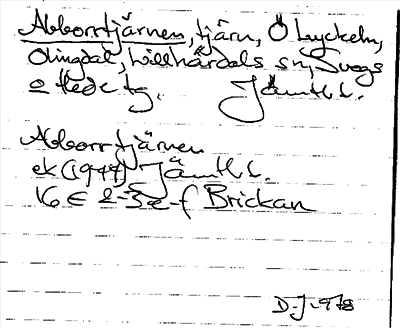 Abborrtjärnen, tjärn, Ö Lyckeln,
Olingdal, Lillhärdals sn, Svegs
o Hede tg. Jämtl. L.
Abborrtjärnen
ek (1944) Jämtl. L.
16 E 2-3 e-f Brickan
D-J-978